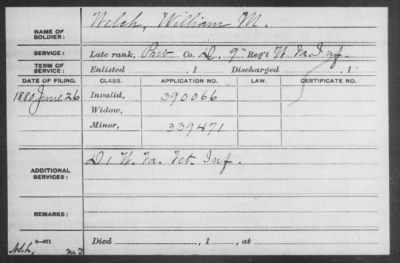 NAME OF SOLDIER: Welch, William M.
SERVICE: Late rank, Priv Co. D, 9" Reg't W. Va. Inf.
TERM OF SERVICE: Enlisted , 1 Discharged , 1
DATE OF FILING. CLASS. APPLICATION NO. LAW. CERTIFICATE NO.
1880 June 26 Invalid, 390066
Widow,
Minor, 339471
ADDITIONAL SERVICES: D, 1 W. Va. Vet. Inf.
REMARKS:
Died , 1 , at